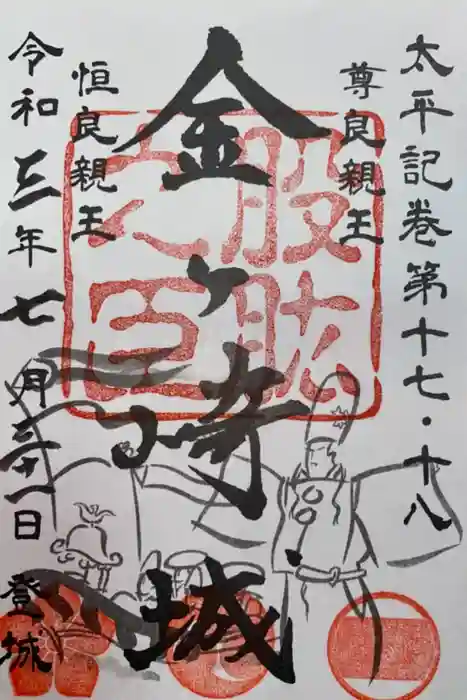 太平記巻第十七・十八
尊良親王
金ヶ崎城
恒良親王
令和三年七月三十一日 登城
股肱之臣